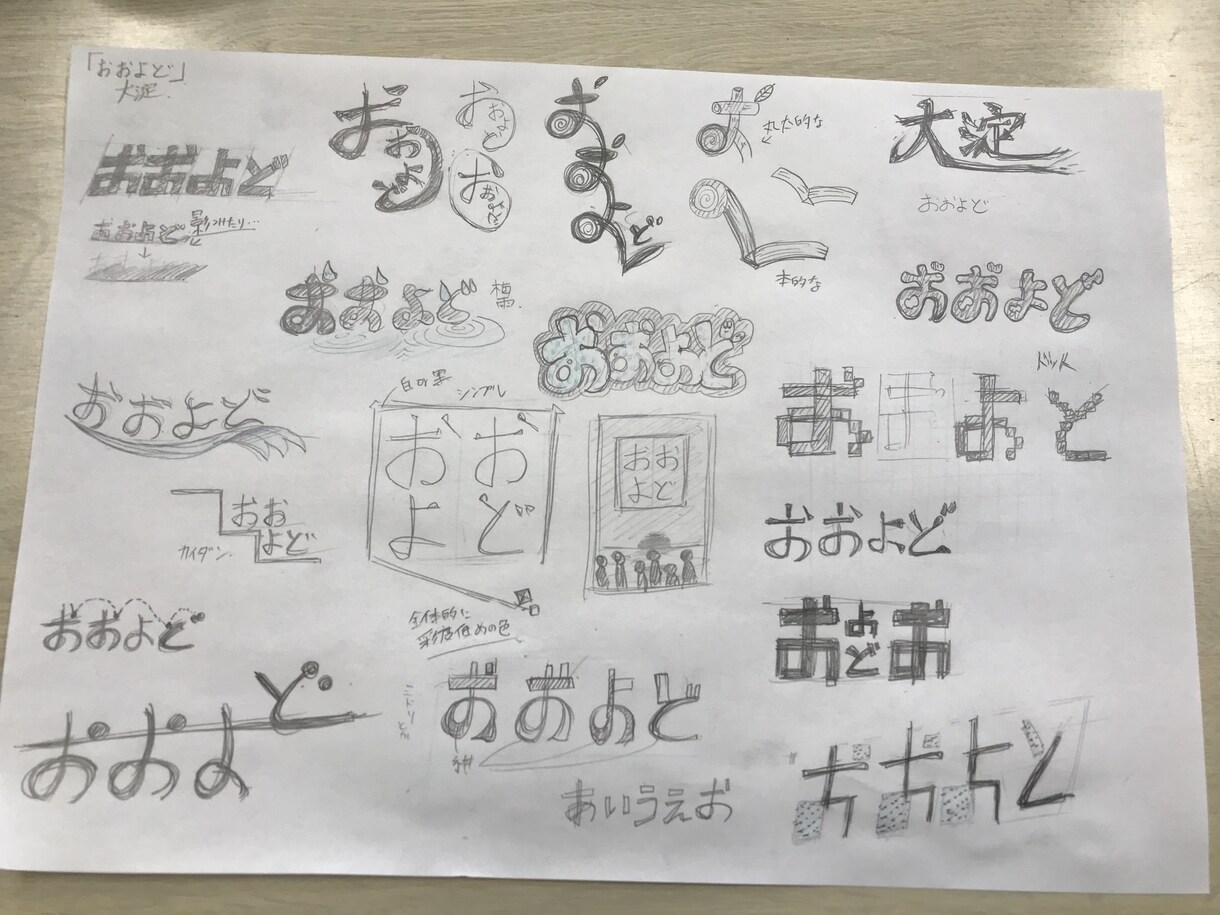 「おおよど」
大淀.
おおよど
おおよど
影つけたり…
おおよど
おおよど
おおよど
おおよど
お
丸太的な
本的な
大淀
おおよど
おおよど
梅雨.
おおよど
おおよど
おおよど
白の墨
シンプル
おお
よど
おお
よど
おおよど
ドット
カイダン.
おお
よど
おおよど
全体的に
彩度低めの色
おおよど
おおよど
おおよど
おおよど
あいうえお
おおよど